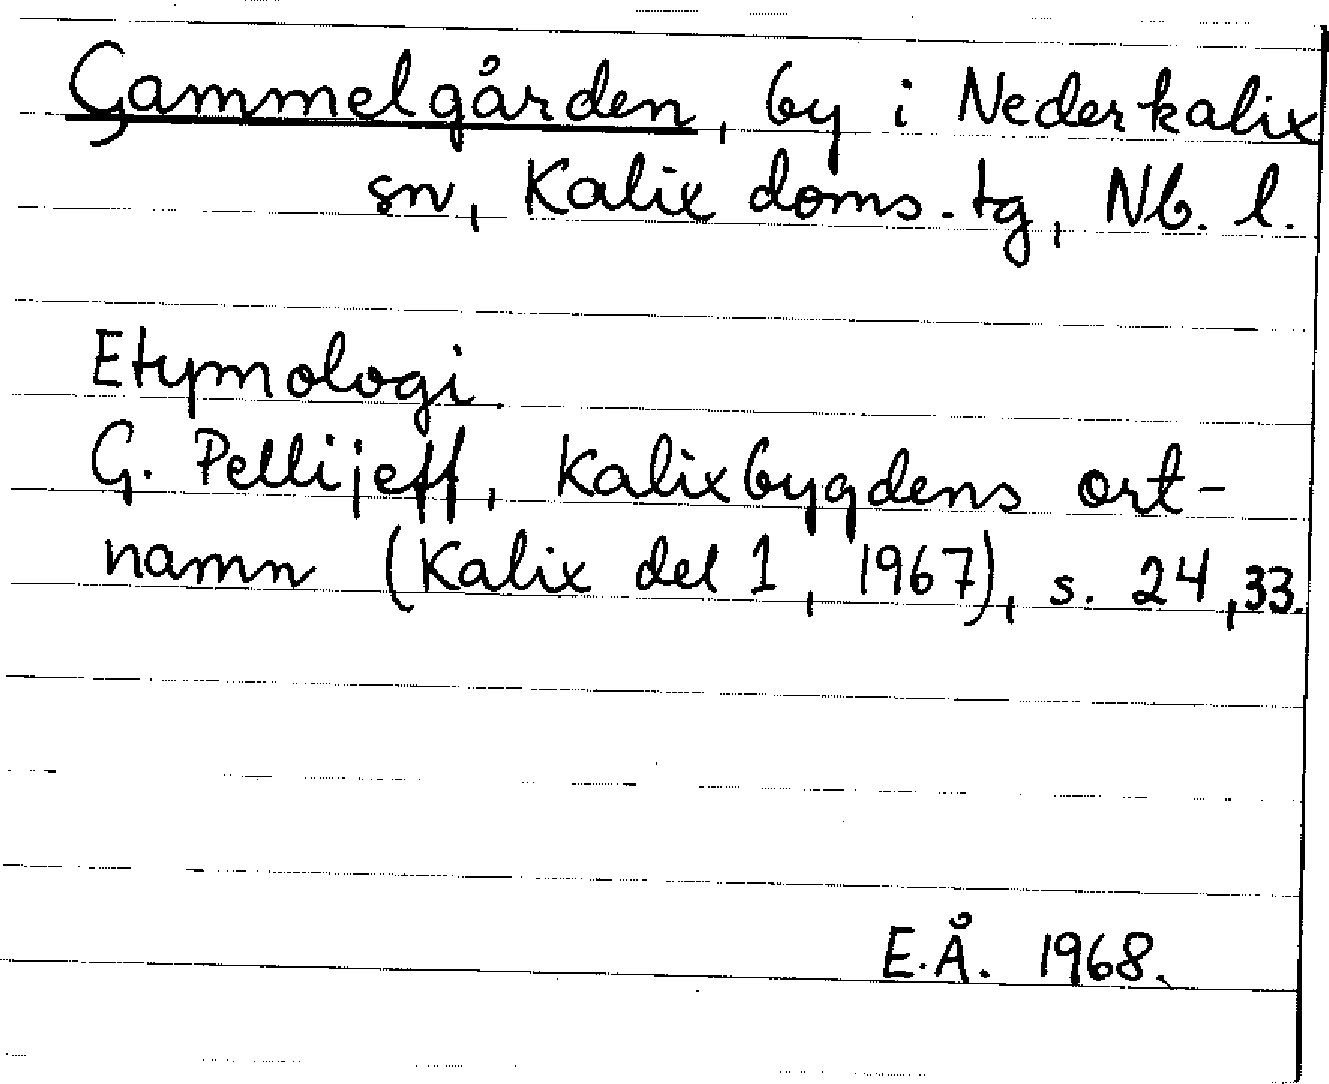 Gammelgården, by i Nederkalix
sn, Kalix doms.tg, Nb. l.
Etymologi
G. Pellijeff, Kalixbygdens ort-
namn (Kalix del 1, 1967), s. 24, 33.
E.Å. 1968.